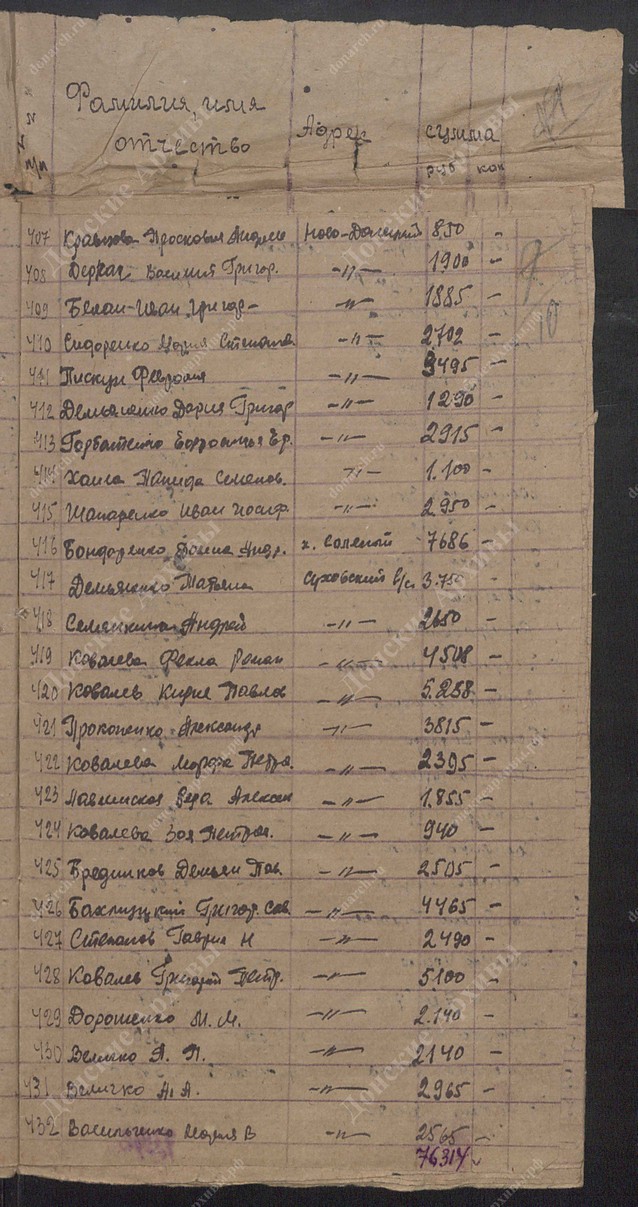 Фамилия, имя Адрес сумма
N N п/п отчество руб коп
407 Кравцова Просковья Андрее Ново-Донецкий 850 -
408 Деркач Василий Григор. -"- 1900 -
409 Белан Иван Григор- -"- 1885 -
410 Сидоренко Мария Степанов -"- 2702 -
411 Пискун Феврония -"- 3495 -
412 Демьяненко Дария Григор -"- 1290 -
413 Горбатенко -"- 2915 -
414 Семенов. -"- 1.100 -
415 Шапаренко Иван Иосиф. -"- 2950 -
416 Бондаренко Андр. х. Соленый 7686 -
417 Демьяненко Татьяна Суховский с/с 3.750 -
418 Семенкина Андрей -"- 2650 -
419 Ковалева Фекла Роман -"- 4508 -
420 Ковалев Кирил Павлов -"- 5.288 -
421 Прокопенко Александр -"- 3815 -
422 Ковалева Марфа Петров. -"- 2395 -
423 Вера Алексан -"- 1.855 -
424 Ковалева Зоя Петров. -"- 940 -
425 Бредихков Демьян Пав. -"- 2505 -
426 Григор. Сав. -"- 4465 -
427 Степанов Гаврил Н -"- 2490 -
428 Ковалев Григорий Петр. -"- 5100 -
429 Дорошенко М. М. -"- 2.140 -
430 Величко А. П. -"- 2140 -
431 Величко А. А. -"- 2965 -
432 Васильченко Мария В -"- 2565 -
76314